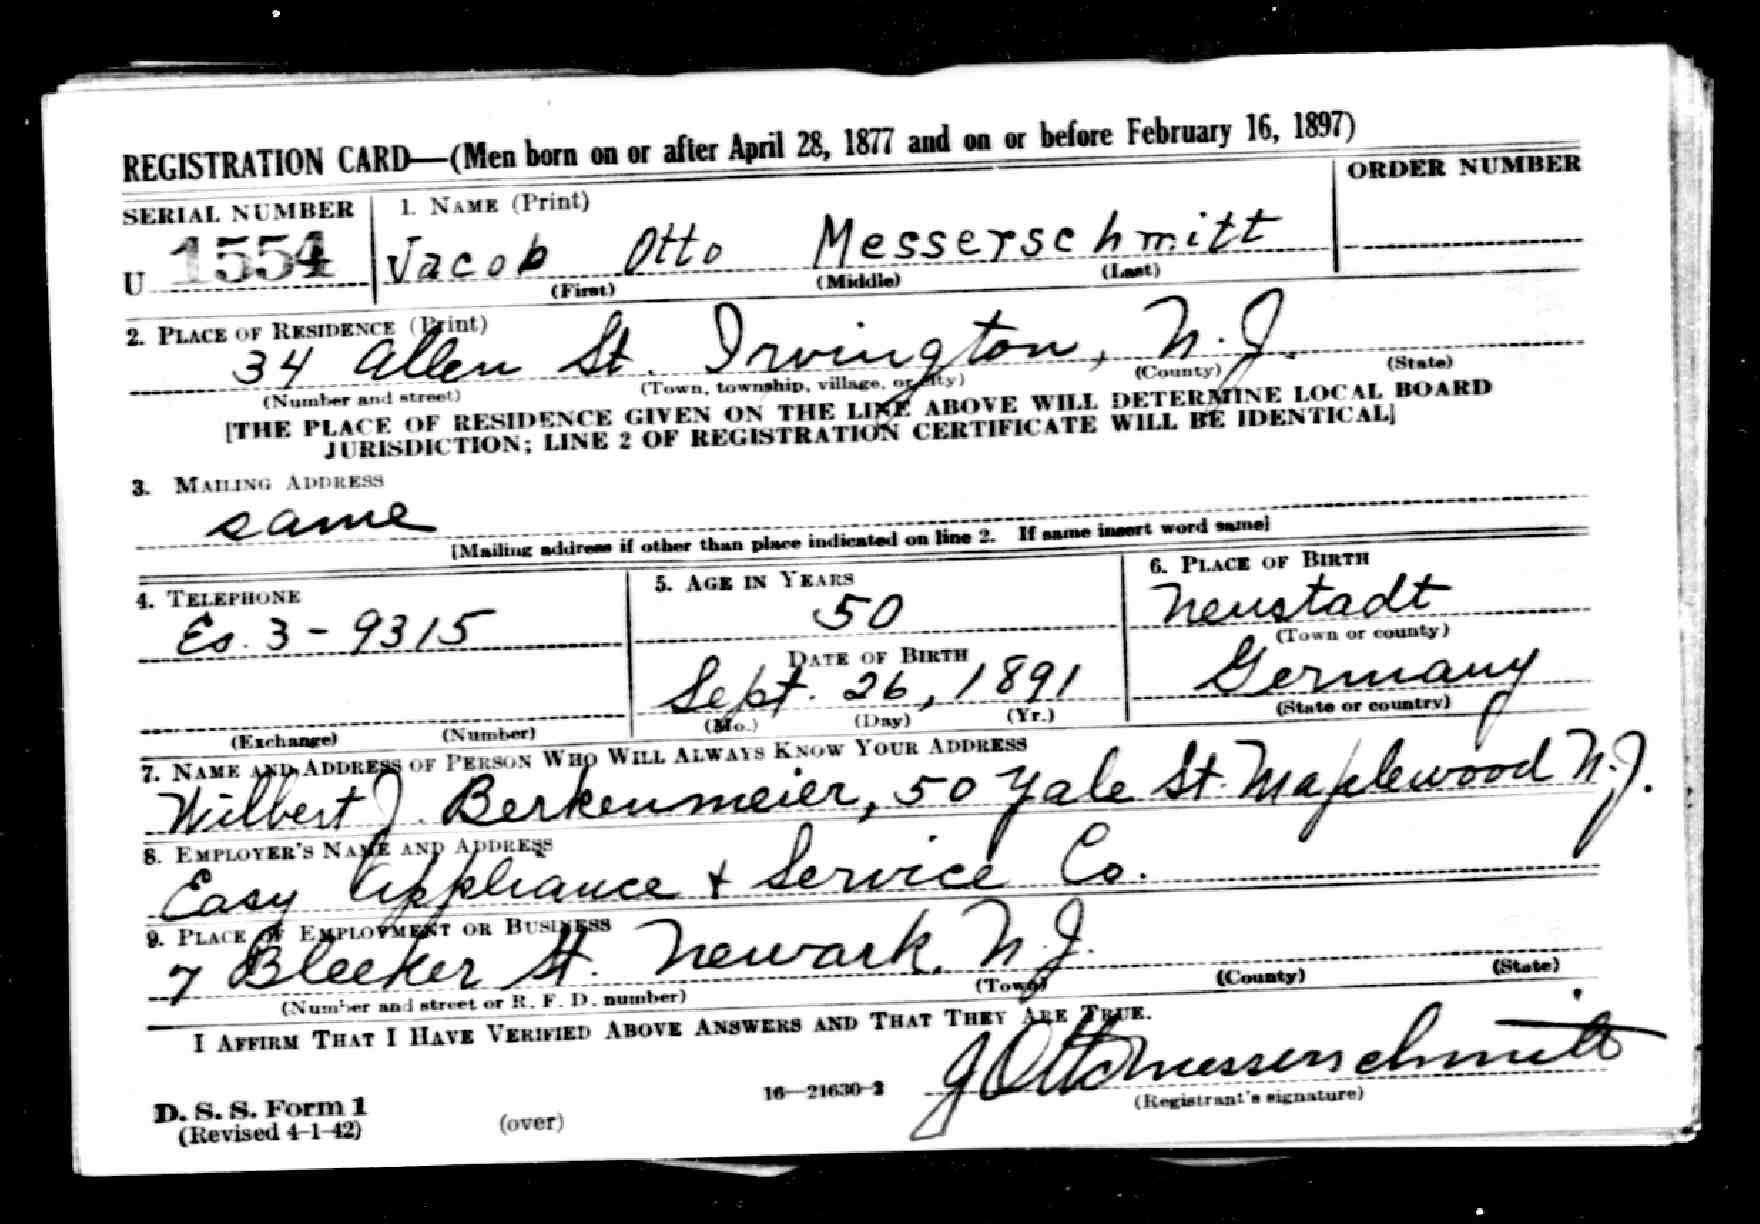 REGISTRATION CARD—(Men born on or after April 28, 1877 and on or before February 16, 1897)
SERIAL NUMBER
1. NAME (Print)
ORDER NUMBER
U 1554
Jacob Otto Messerschmitt
(First) (Middle) (Last)
2. PLACE OF RESIDENCE (Print)
34 Allen St. Irvington, N.J.
(Number and street) (Town, township, village, or city) (County) (State)
[THE PLACE OF RESIDENCE GIVEN ON THE LINE ABOVE WILL DETERMINE LOCAL BOARD
JURISDICTION; LINE 2 OF REGISTRATION CERTIFICATE WILL BE IDENTICAL]
3. MAILING ADDRESS
same
[Mailing address if other than place indicated on line 2. If same insert word same]
4. TELEPHONE
Es. 3-9315
(Exchange) (Number)
5. AGE IN YEARS
50
DATE OF BIRTH
Sept. 26, 1891
(Mo.) (Day) (Yr.)
6. PLACE OF BIRTH
Neustadt
(Town or county)
Germany
(State or country)
7. NAME AND ADDRESS OF PERSON WHO WILL ALWAYS KNOW YOUR ADDRESS
Wilbert J. Berkenmeier, 50 Yale St. Maplewood N.J.
8. EMPLOYER'S NAME AND ADDRESS
Easy Appliance + Service Co.
9. PLACE OF EMPLOYMENT OR BUSINESS
7 Bleeker St. Newark, N.J.
(Number and street or R. F. D. number) (Town) (County) (State)
I AFFIRM THAT I HAVE VERIFIED ABOVE ANSWERS AND THAT THEY ARE TRUE.
J Otto Messerschmitt
(Registrant's signature)
D. S. S. Form 1
(Revised 4-1-42)
(over)
16—21630-2